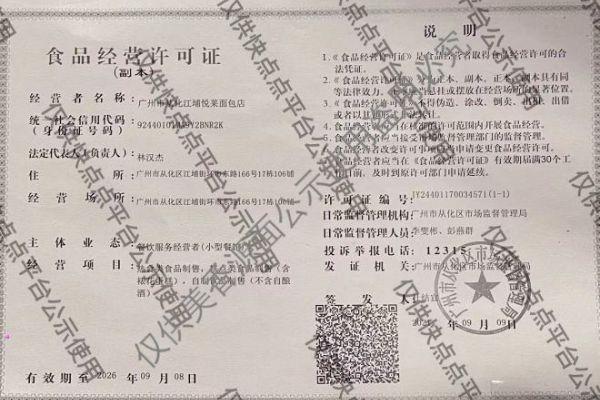 食品经营许可证
(副本)
经营者名称: 广州市从化江埔悦莱面包店
统一社会信用代码
(身份证号码): 92440101MA9Y2BNR2K
法定代表人(负责人): 林汉杰
住所: 广州市从化区江埔街环市东路166号17栋106铺
经营场所: 广州市从化区江埔街环市东路166号17栋106铺
主体业态: 餐饮服务经营者(小型餐馆)
经营项目: 热食类食品制售,糕点类食品制售(含
裱花蛋糕),自制饮品制售(不含自酿
酒)
有效期至 2026 年 09 月 08 日
说明
1.《食品经营许可证》是食品经营者取得食品经营许可的合
法凭证。
2.《食品经营许可证》分为正本、副本。正本、副本具有同
等法律效力。正本应当悬挂或摆放在经营场所的显著位置。
3.《食品经营许可证》不得伪造、涂改、倒卖、出租、出借
或者以其他形式非法转让。
食品经营者应当在核准的许可范围内开展食品经营。
食品经营者应当接受市场监督管理部门的监督管理。
食品经营者改变许可事项应当申请变更食品经营许可。
食品经营者应当在《食品经营许可证》有效期届满30个工
作日前,及时到原许可部门申请延续。
许可证编号: JY24401170034571(1-1)
日常监督管理机构: 广州市从化区市场监督管理局
日常监督管理人员: 李雯彬、彭燕群
投诉举报电话: 12315
发证机关: 广州市从化区市场监督管理局
签发人:
09 月 09 日
广州市从化区市场监督管理局
仅供快点点平台公示使用